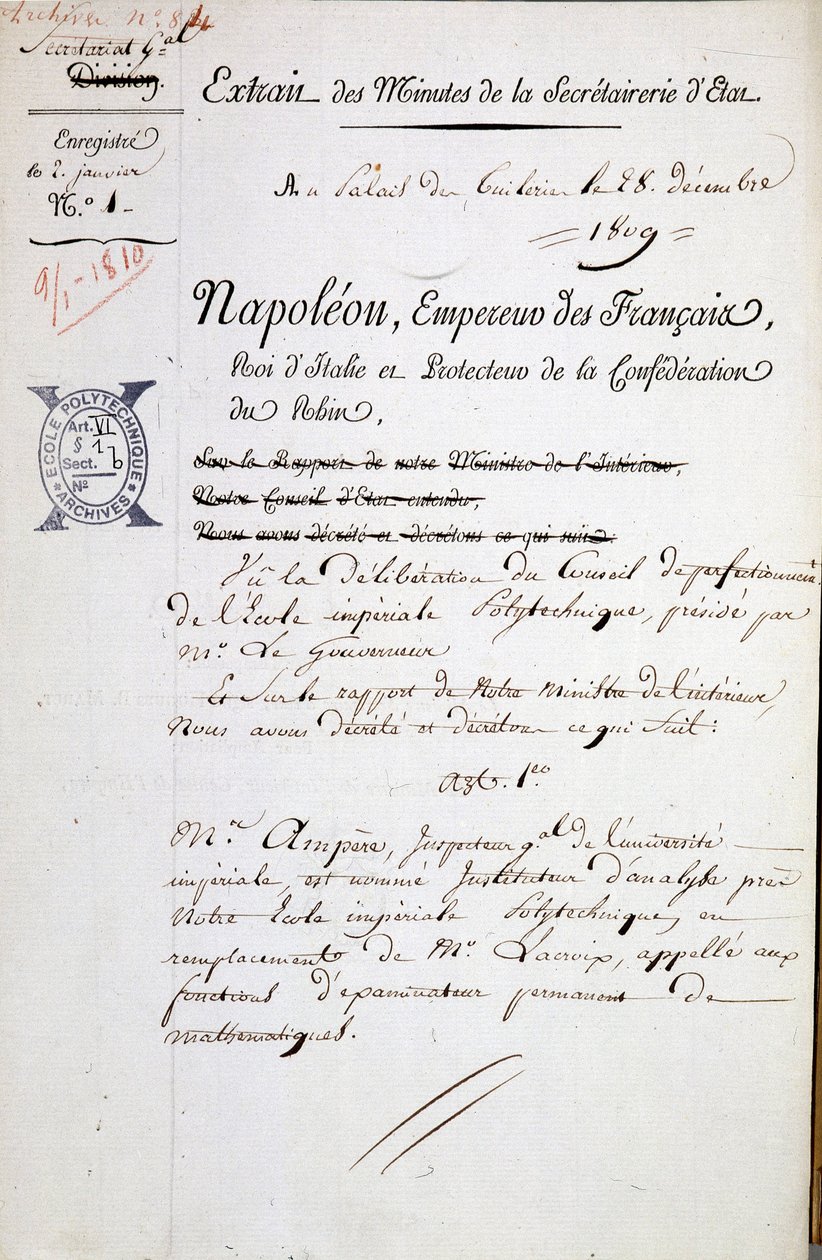 Archives N.o 84
Secrétariat G.al
Division.
Enregistré
le 2. janvier
N.o 1
9/1-1810
ECOLE POLYTECHNIQUE
Art. VI
§ 1
Sect. b
No
ARCHIVES
Extrait des Minutes de la Secrétairerie d'Etat.
Au Palais des Tuileries le 28. décembre
= 1809 =
Napoléon, Empereur des Français,
Roi d'Italie et Protecteur de la Confédération
du Rhin,
Sur le Rapport de notre Ministre de l'Intérieur,
Notre Conseil d'Etat entendu,
Nous avons décrété et décrétons ce qui suit:
Vû la Délibération du Conseil de perfectionnem.t
de l'École impériale Polytechnique, présidé par
M.r Le Gouverneur
Et Sur le rapport de Notre ministre de l'intérieur,
Nous avons décrété et décrétons ce qui Suit:
Art. 1.er
M.r Ampère, Inspecteur g.al de l'université
impériale, est nommé Instituteur d'analyse près
Notre École impériale Polytechnique, en
remplacement de M.r Lacroix, appellé aux
fonctions d'examinateur permanent de
mathématiques.